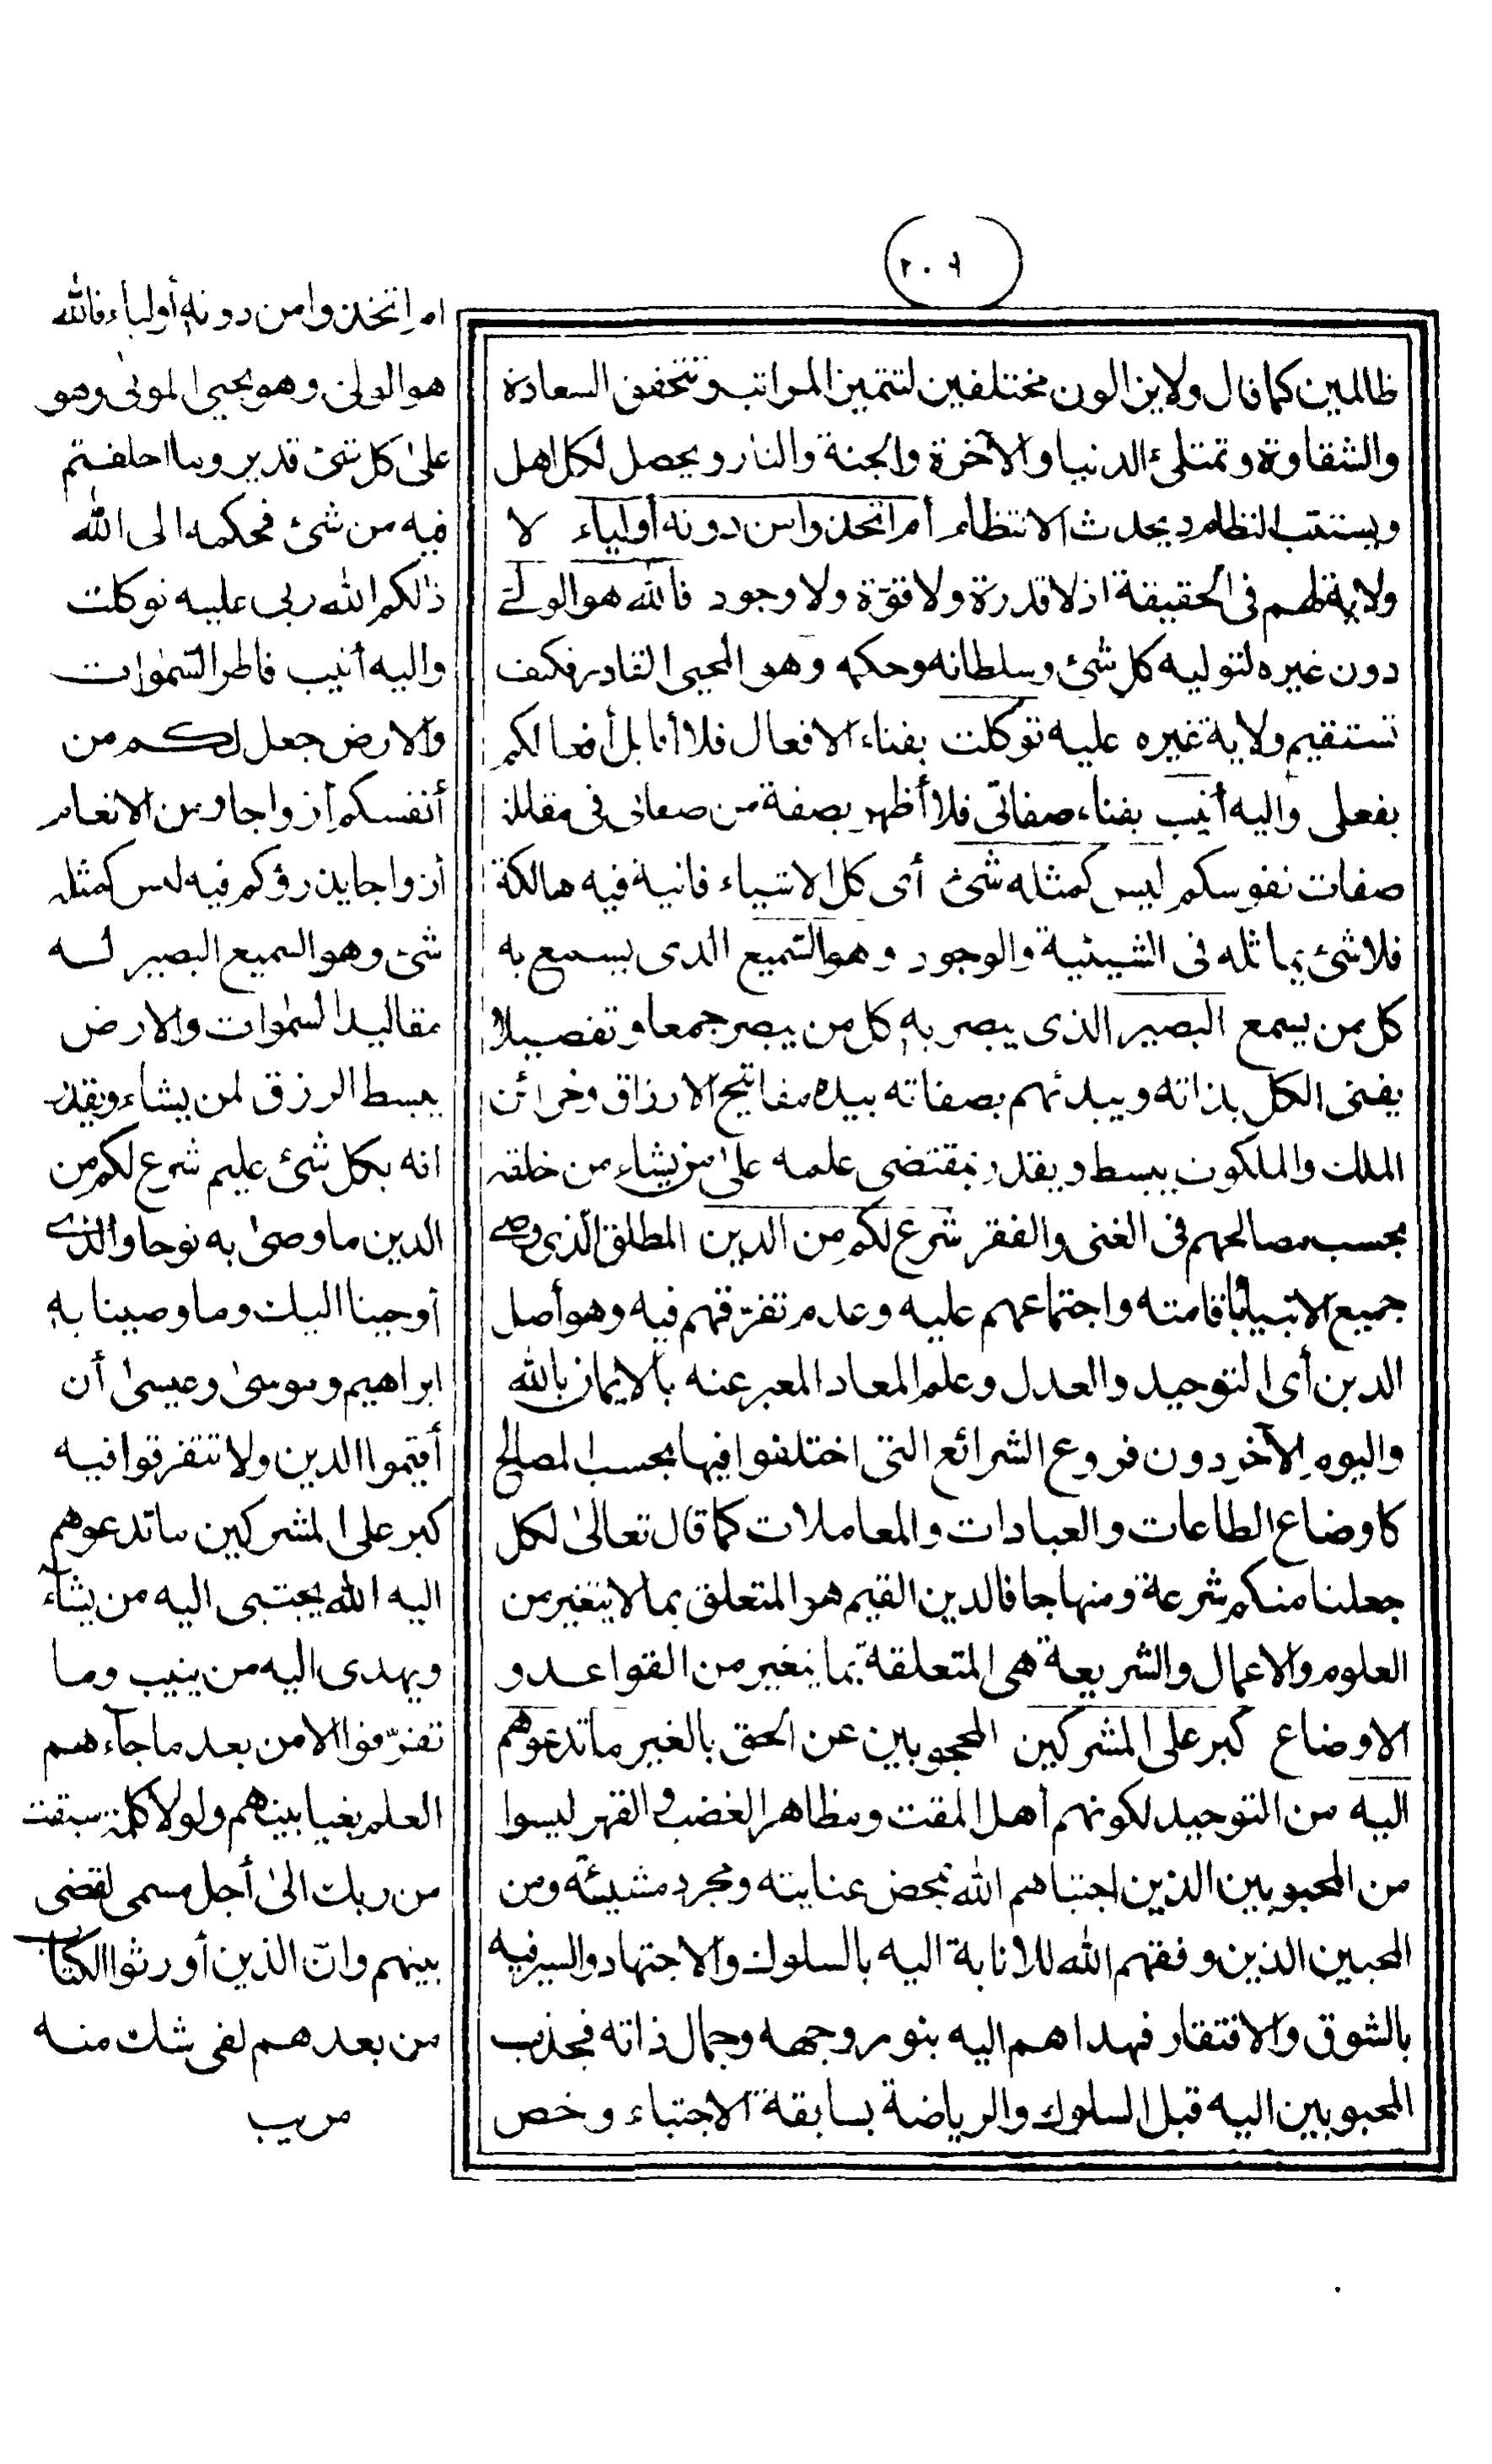 ٢٠٦
ظالمين كما قال ولا يزالون مختلفين لتتميز المراتب وتتحقق السعادة
والشقاوة وتمتلئ الدنيا والآخرة والجنة والنار ويحصل لكل اهل
ويستتب النظام ويحدث الانتظام أم اتخذوا من دونه أولياء لا
ولاية لهم فى الحقيقة اذ لا قدرة ولا قوّة ولا وجود فالله هو الولى
دون غيره لتوليه كل شئ وسلطانه وحكمه وهو المحيى القادر فكيف
تستقيم ولاية غيره عليه توكلت بفناء الافعال فلا أنا بل أفعالكم
بفعلى واليه أنيب بفناء صفاتى فلا أظهر بصفة من صفاتى فى مقابلة
صفات نفوسكم ليس كمثله شئ أى كل الاشياء فانية فيه هالكة
فلا شئ يماثله فى الشيئية والوجود وهو السّميع الذى يسمع به
كل من يسمع البصير الذى يبصر به كل من يبصر جمعا وتفصيلا
يفنى الكل بذاته ويبدئهم بصفاته بيده مفاتيح الارزاق وخزائن
الملك والملكوت يبسط ويقدر بمقتضى علمه على من يشاء من خلقه
بحسب مصالحهم فى الغنى والفقر شرع لكم من الدين المطلق الّذى وصى
جميع الانبياء باقامته واجتماعهم عليه وعدم تفرّقهم فيه وهو أصل
الدين أى التوحيد والعدل وعلم المعاد المعبر عنه بالايمان بالله
واليوم الآخر دون فروع الشرائع التى اختلفوا فيها بحسب المصالح
كاوضاع الطاعات والعبادات والمعاملات كما قال تعالىٰ لكل
جعلنا منكم شرعة ومنهاجا فالدين القيم هو المتعلق بما لا يتغير من
العلوم والاعمال والشريعة هى المتعلقة بما يتغير من القواعد و
الاوضاع كبر على المشركين المحجوبين عن الحق بالغير ما تدعوهم
اليه من التوحيد لكونهم أهل المقت ومظاهر الغضب والقهر ليسوا
من المحبوبين الذين اجتباهم الله بمحض عنايته ومجرد مشيئته ومن
المحبين الذين وفقهم الله للانابة اليه بالسلوك والاجتهاد والسير فيه
بالشوق والافتقار فهداهم اليه بنور وجهه وجمال ذاته فجذب
المحبوبين اليه قبل السلوك والرياضة بسابقة الاجتباء وخص
ام اتخذوا من دونه أولياء فالله
هو الولى وهو يحيى الموتىٰ وهو
علىٰ كل شئ قدير وما اختلفتم
فيه من شئ فحكمه الى الله
ذٰلكم الله ربى عليه توكلت
واليه أنيب فاطر السّمٰوات
والارض جعل لكم من
أنفسكم أزواجا ومن الانعام
أزواجا يذرؤكم فيه ليس كمثله
شئ وهو السميع البصير له
مقاليد السمٰوات والارض
يبسط الرزق لمن يشاء ويقدر
انه بكل شئ عليم شرع لكم من
الدين ما وصىٰ به نوحا والذى
أوحينا اليك وما وصينا به
ابراهيم وموسىٰ وعيسىٰ أن
أقيموا الدين ولا تتفرقوا فيه
كبر على المشركين ما تدعوهم
اليه الله يجتبى اليه من يشاء
ويهدى اليه من ينيب وما
تفرّقوا الا من بعد ما جاءهم
العلم بغيا بينهم ولولا كلمة سبقت
من ربك الىٰ أجل مسمى لقضى
بينهم وانّ الذين أورثوا الكتاب
من بعدهم لفى شك منه
مريب